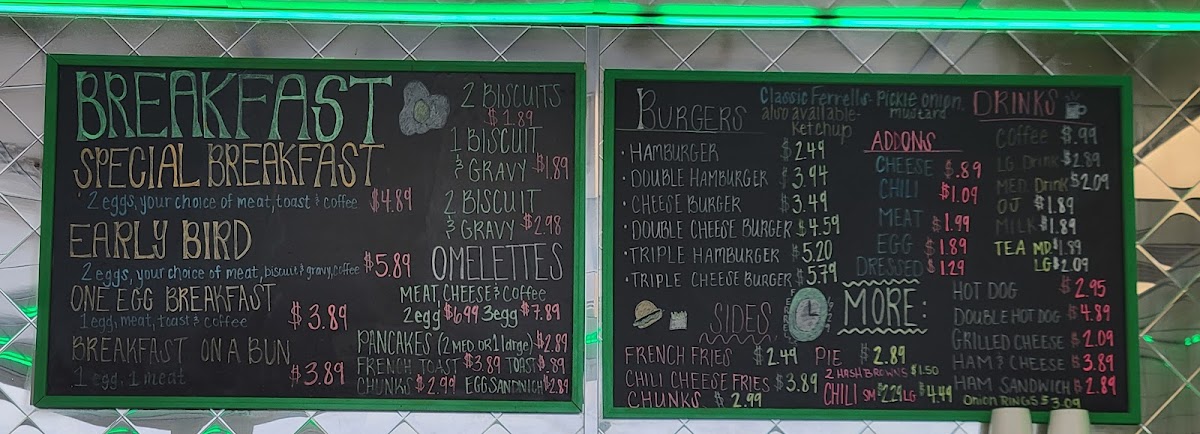 BREAKFAST
SPECIAL BREAKFAST
2 eggs, your choice of meat, toast & coffee $4.89
EARLY BIRD
2 eggs, your choice of meat, biscuit & gravy, coffee $5.89
ONE EGG BREAKFAST
1 egg, meat, toast & coffee $3.89
BREAKFAST ON A BUN
1 egg, 1 meat $3.89
2 BISCUITS
$1.89
1 BISCUIT
& GRAVY $1.89
2 BISCUIT
& GRAVY $2.98
OMELETTES
MEAT, CHEESE & COFFEE
2 egg $6.99 3 egg $7.89
PANCAKES (2 MED OR 1 large) $2.89
FRENCH TOAST $3.89 TOAST $.89
CHUNKS $2.99 EGG SANDWICH $2.89
BURGERS
Classic Ferrell's- Pickle onion,
mustard
also available-
Ketchup
HAMBURGER $2.49
DOUBLE HAMBURGER $3.94
CHEESE BURGER $3.49
DOUBLE CHEESE BURGER $4.59
TRIPLE HAMBURGER $5.20
TRIPLE CHEESE BURGER $5.79
ADDONS
CHEESE $.89
CHILI $1.09
MEAT $1.99
EGG $1.89
DRESSED $1.29
DRINKS
Coffee $.99
LG Drink $2.89
MED Drink $2.09
OJ $1.89
MILK $1.89
TEA MD $1.89
LG $2.09
SIDES
FRENCH FRIES $2.49
CHILI CHEESE FRIES $3.89
CHUNKS $2.99
PIE $2.89
2 HASH BROWNS $1.50
CHILI SM $2.29 LG $4.49
MORE:
HOT DOG $2.95
DOUBLE HOT DOG $4.89
GRILLED CHEESE $2.09
HAM & CHEESE $3.89
HAM SANDWICH $2.89
ONION RINGS $3.09